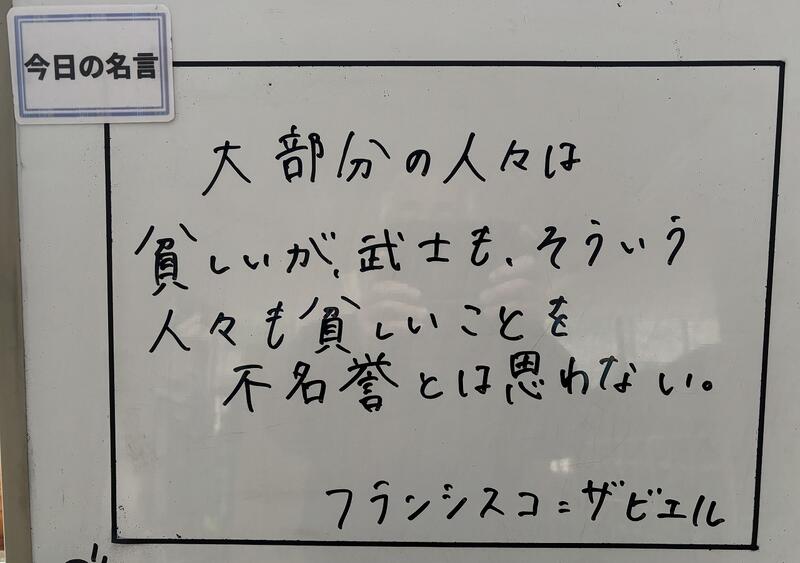 今日の名言
大部分の人々は
貧しいが、武士も、そういう
人々も貧しいことを
不名誉とは思わない。
フランシスコ=ザビエル